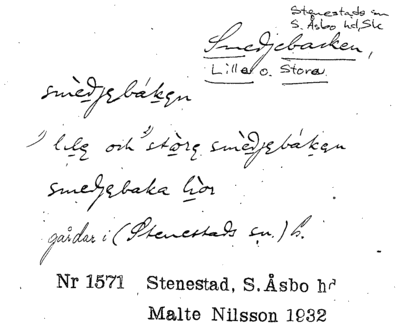 Stenestads sn
S. Åsbo hd, Sk
Smedjebacken,
Lilla o. Stora
smèdjebáken
lile och stòre smèdjebáken
smedjebaka lior
gårdar i (Stenestads sn.) h.
Nr 1571 Stenestad, S. Åsbo hd
Malte Nilsson 1932